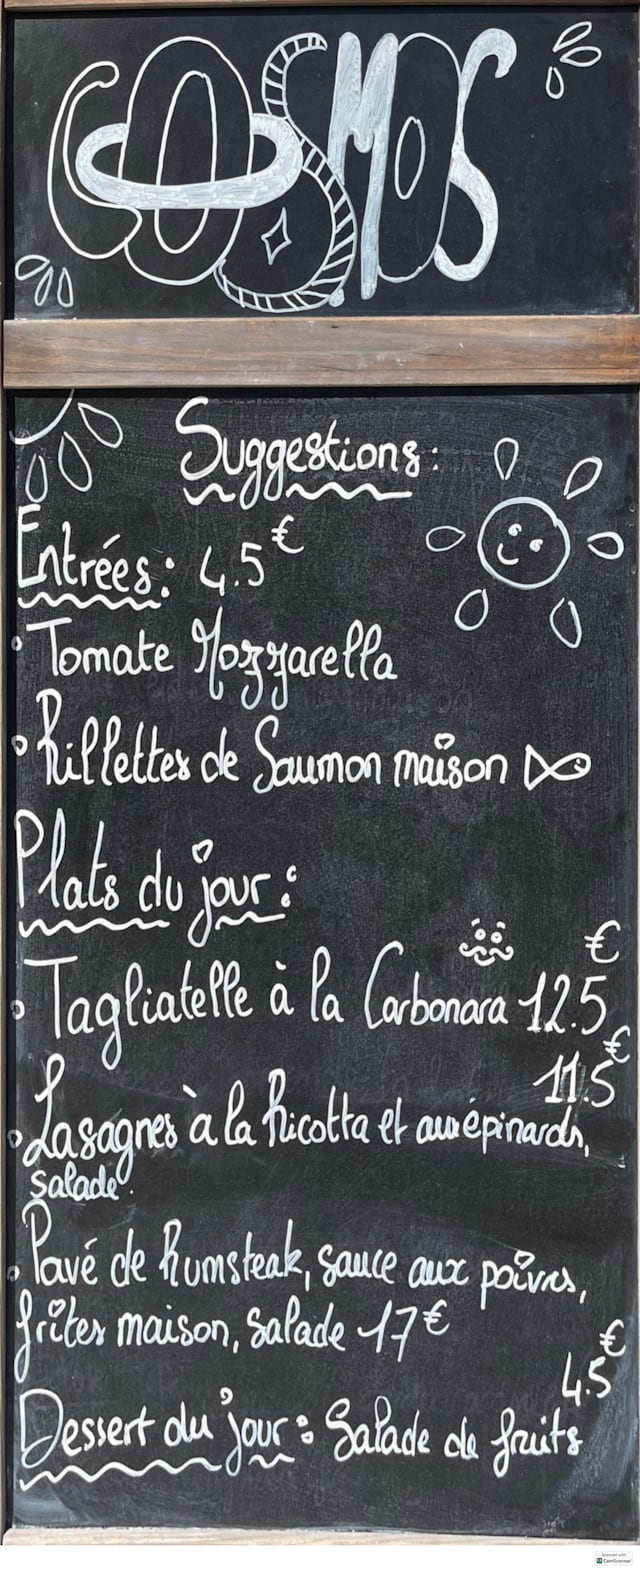 COSMOS
Suggestions:
Entrées: 4.5€
Tomate Mozzarella
Rillettes de Saumon maison
Plats du jour:
Tagliatelle à la Carbonara 12.5€
11.5€
Lasagnes à la Ricotta et aux épinards,
salade.
Pavé de Rumsteak, sauce aux poivres,
frites maison, salade 17€
4.5€
Dessert du jour: Salade de fruits
Scanned with
CamScanner